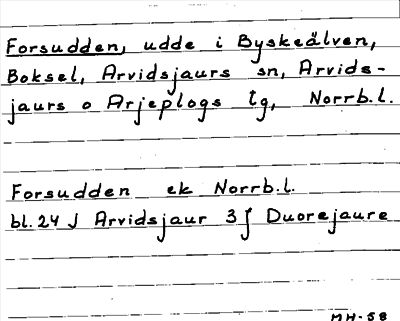 Forsudden, udde i Byskeälven,
Boksel, Arvidsjaurs sn, Arvids-
jaurs o Arjeplogs tg, Norrb.l.
Forsudden ek Norrb.l.
bl. 24 J Arvidsjaur 3 f Duorejaure
MH-58